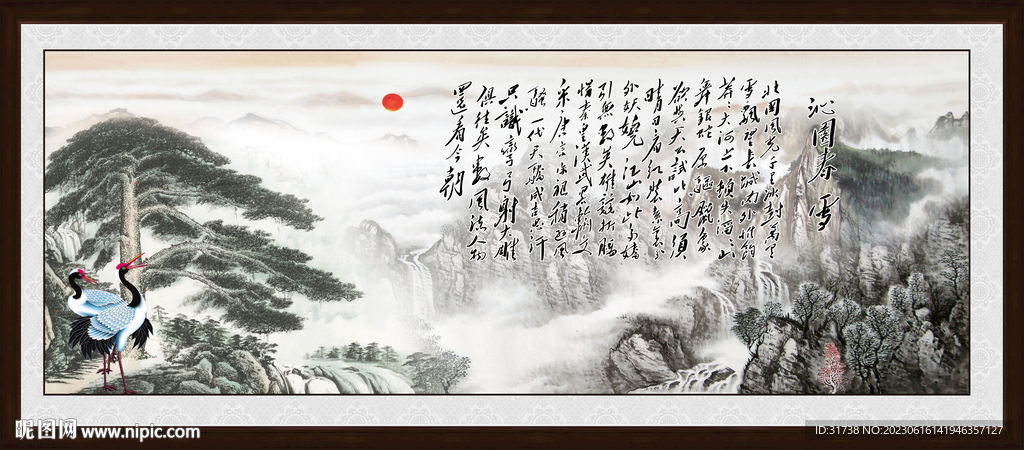 沁園春 雪
北国風光千里冰封萬里
雪飘望長城内外惟餘
莽〻大河上下頓失滔〻山
舞銀蛇原驅蠟象
欲與天公試比高須
晴日看红装素裹分
外妖嬈 江山如此多嬌
引無數英雄競折腰
惜秦皇漢武略輸文
采唐宗宋祖稍遜風
騷一代天驕成吉思汗
只識彎弓射大雕
俱往矣數風流人物
還看今朝
昵图网 www.nipic.com
ID:31738 NO:20230616141946357127